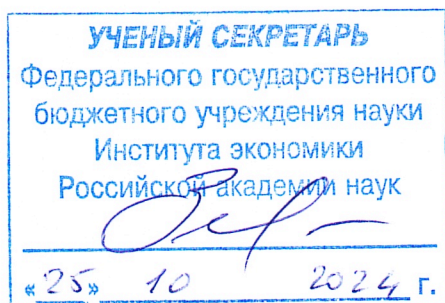 УЧЕНЫЙ СЕКРЕТАРЬ
Федерального государственного
бюджетного учреждения науки
Института экономики
Российской академии наук
«25» 10 2024 г.